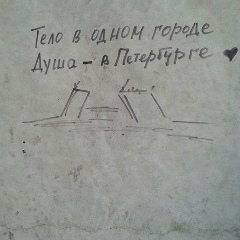 Тело в одном городе
Душа – в Петербурге ♥